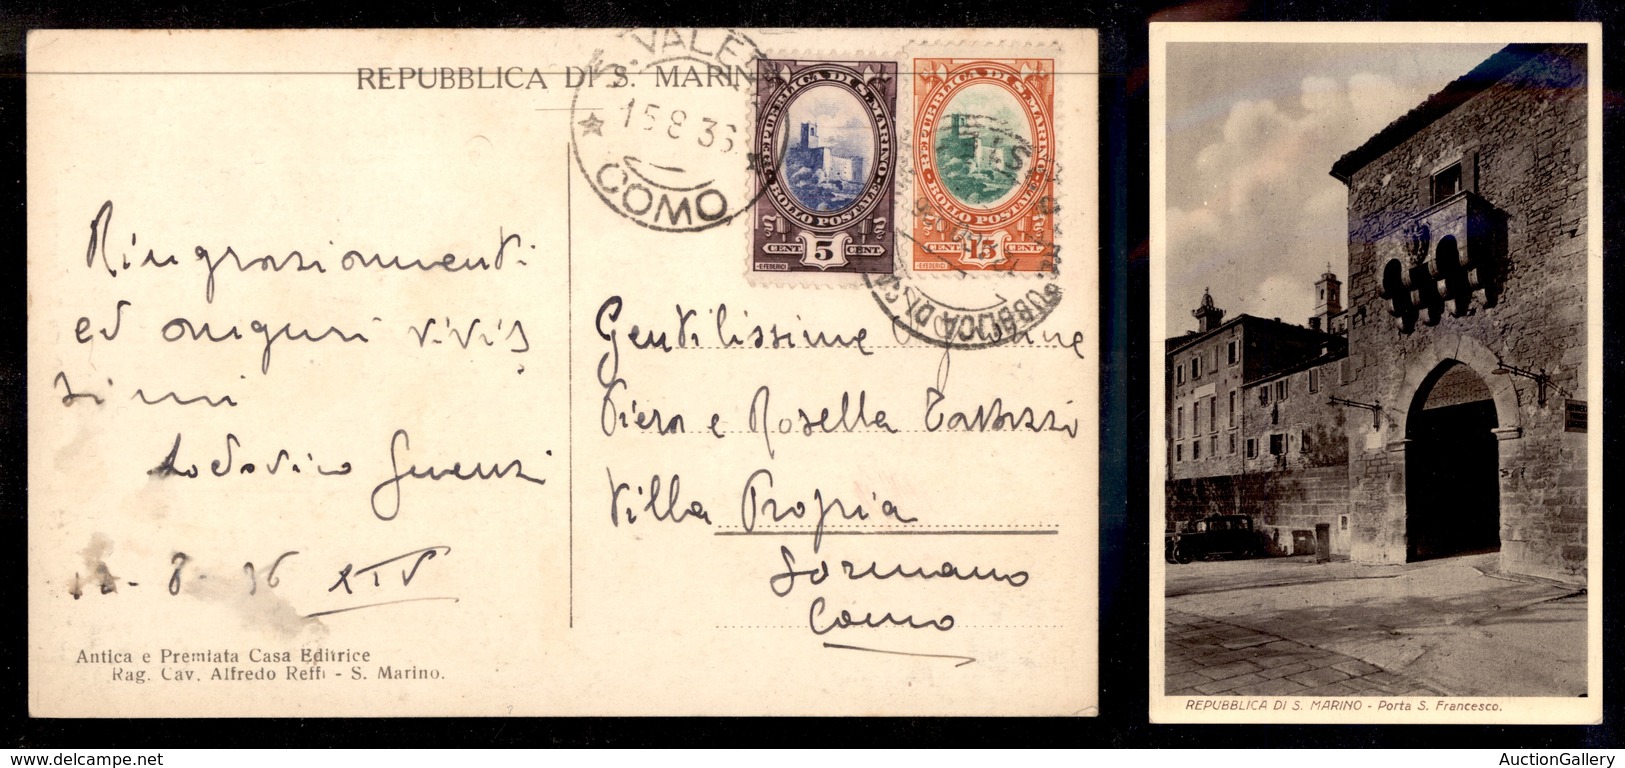 REPUBBLICA DI S. MARIN
VALE
15 8 36
COMO
REPUBBLICA DI S. MARINO
BOLLO POSTALE
CENT. 5 CENT.
E.FEDERICI
REPUBBLICA DI S. MARINO
BOLLO POSTALE
CENT. 15 CENT.
E.FEDERICI
Ringraziamenti
ed auguri vivis
simi
Lodovico
12-8-36 XIV
Antica e Premiata Casa Editrice
Rag. Cav. Alfredo Reffi - S. Marino.
Gentilissime Signorine
Piera e Rosella
Villa Propria
Sormano
Como
REPUBBLICA DI S. MARINO - Porta S. Francesco.
AuctionGallery